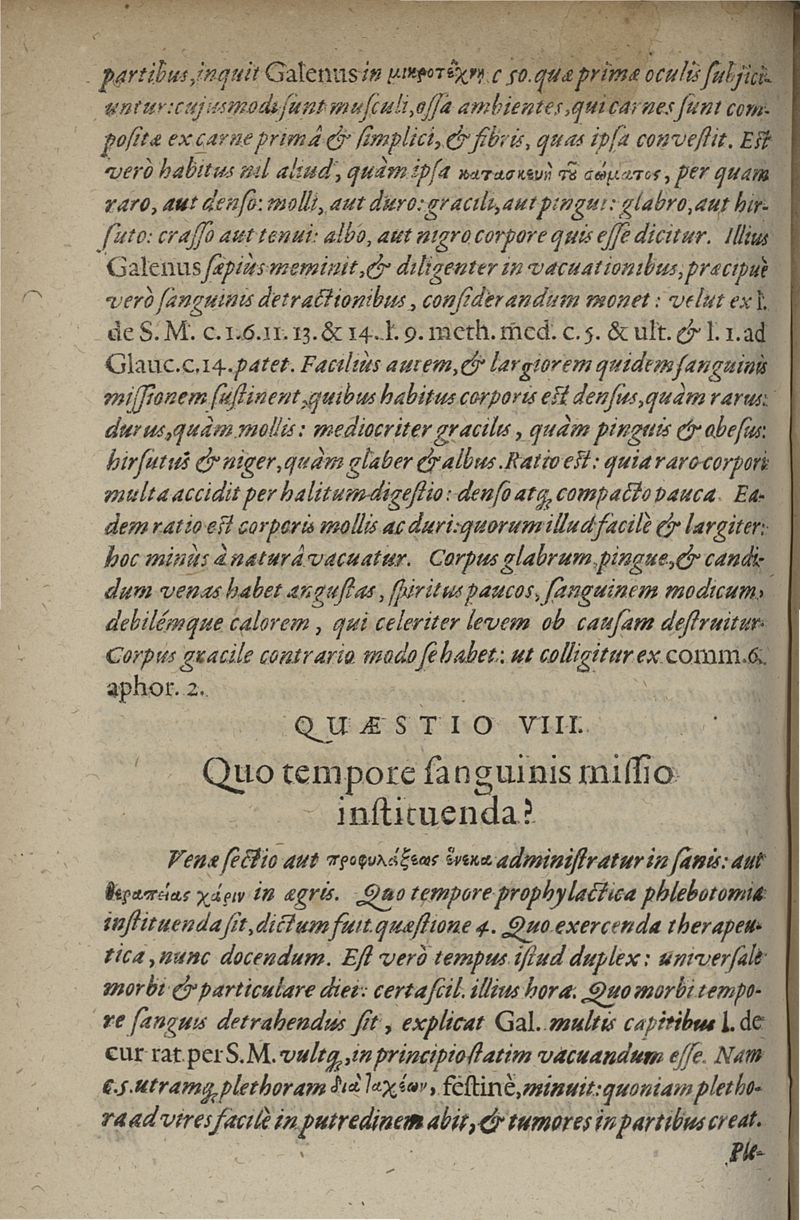 partibus, inquit Galenus in μικροτέχνῃ c 50. quæ primæ oculis subjici-
untur: cujusmodi sunt musculi, ossa ambientes, qui carnes sunt com-
positæ ex carne primâ & simplici, & fibris, quas ipsa convestit. Est
verò habitus nil aliud, quàm ipsa κατασκευὴ τοῦ σώματος, per quam
raro, aut denso: molli, aut duro: gracili, aut pingui: glabro, aut hir-
suto: crasso aut tenui: albo, aut nigro corpore quis esse dicitur. Illius
Galenus sæpiùs meminit, & diligenter in vacuationibus, præcipuè
verò sanguinis detractionibus, considerandum monet: velut ex l.
de S. M. c. 1. 6. 11. 13. & 14. l. 9. meth. med. c. 5. & ult. & l. 1. ad
Glauc. c. 14. patet. Faciliùs autem, & largiorem quidem sanguinis
missionem sustinent, quibus habitus corporis est densus, quàm rarus:
durus, quàm mollis: mediocriter gracilis, quàm pinguis & obesus:
hirsutus & niger, quàm glaber & albus. Ratio est: quia raro corpori
multa accidit per halitum digestio: denso atq; compacto pauca. Ea-
dem ratio est corporis mollis ac duri: quorum illud facilè & largiter:
hoc minùs à naturâ vacuatur. Corpus glabrum, pingue, & candi-
dum venas habet angustas, spiritus paucos, sanguinem modicum,
debilémque calorem, qui celeriter levem ob causam destruitur.
Corpus gracile contrario modo se habet: ut colligitur ex comm. 6.
aphor. 2.
QUÆSTIO VIII.
Quo tempore sanguinis missio
instituenda?
Venæ sectio aut προφυλάξεως ἕνεκα administratur in sanis: aut
θεραπείας χάριν in ægris. Quo tempore prophylactica phlebotomia
instituenda sit, dictum fuit quæstione 4. Quo exercenda therapeu-
tica, nunc docendum. Est verò tempus istud duplex: universale
morbi & particulare diei: certa scil. illius hora. Quo morbi tempo-
re sanguis detrahendus sit, explicat Gal. multis capitibus l. de
cur rat. per S. M. vultq;, in principio statim vacuandum esse. Nam
e. s. utramq; plethoram διὰ ταχέων, festinè, minuit: quoniam pletho-
ra ad vires facilè in putredinem abit, & tumores in partibus creat.
Ple-